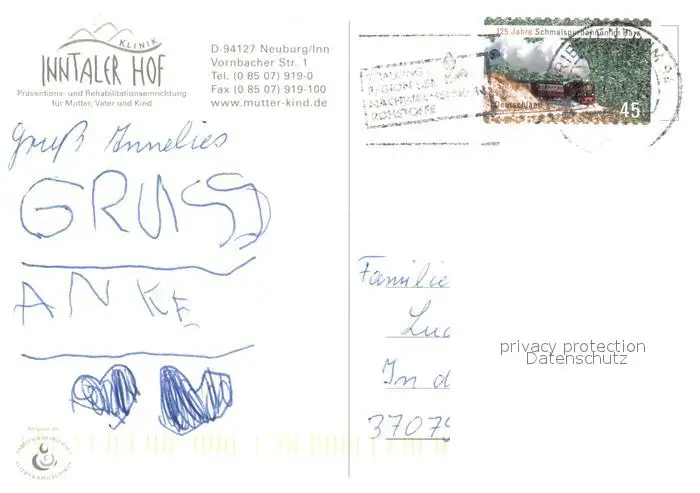 KLINIK
INNTALER HOF
Präventions- und Rehabilitationseinrichtung
für Mutter, Vater und Kind
D-94127 Neuburg/Inn
Vornbacher Str. 1
Tel. (0 85 07) 919-0
Fax (0 85 07) 919-100
www.mutter-kind.de
125 Jahre Schmalspurbahnen im Harz
Deutschland
45
REGION DER
NACHWACHSENDEN
ROHSTOFFE
Gruß Annelies
GRUSS
ANKE
Familie
Luc
In d
3707
privacy protection
Datenschutz
Mitglied im